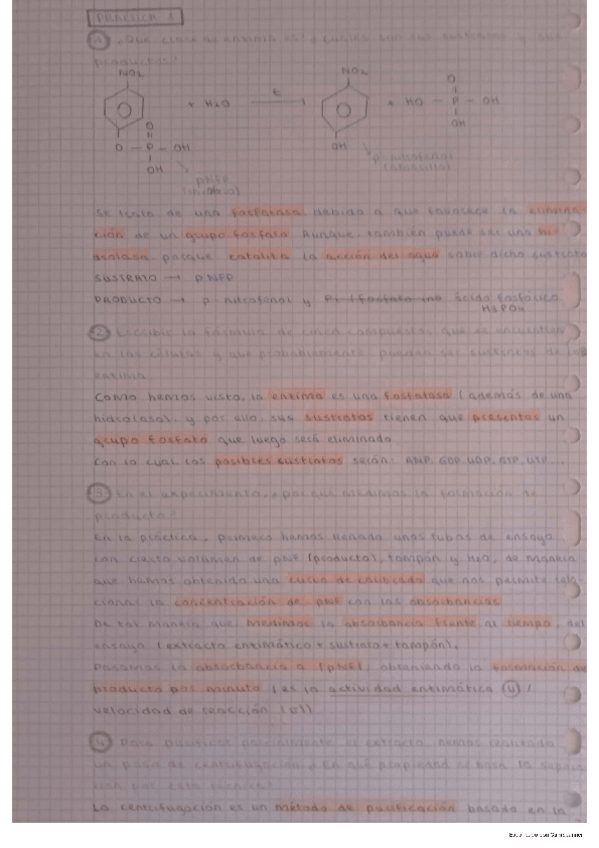 PRÁCTICA 1
1 ¿Qué clase de enzima es? ¿Cuáles son sus sustratos y sus
productos?
NO2
NO2
+ H2O
E
+ HO — P — OH
O
OH
O — P — OH
O
OH
OH
pNPP
p-nitrofenol
(amarillo)
Se trata de una fosfatasa debido a que favorece la elimina-
ción de un grupo fosfato. Aunque, también puede ser una hi-
drolasa porque cataliza la acción del agua sobre dicho sustrato
SUSTRATO → pNPP
PRODUCTO → p-nitrofenol y Pi (fosfato ino ácido fosfórico
H3PO4
2 Escribir la fórmula de cinco compuestos que se encuentren
en las células y que probablemente puedan ser sustratos de la
enzima
Como hemos visto, la enzima es una fosfatasa (además de una
hidrolasa), y por ello, sus sustratos tienen que presentar un
grupo fosfato que luego será eliminado.
Con lo cual los posibles sustratos serán: AMP, GDP, UDP, GTP, UTP...
3 En el experimento, ¿por qué medimos la formación de
producto?
En la práctica, primero hemos llenado unos tubos de ensayo
con cierto volumen de pNF (producto), tampón y H2O, de manera
que hemos obtenido una curva de calibrado que nos permite rela-
cionar la concentración de pNF con las absorbancias.
De tal manera que, medimos la absorbancia frente al tiempo, del
ensayo (extracto enzimático + sustrato + tampón).
Pasamos la absorbancia a [pNF], obteniendo la formación de
producto por minuto (es la actividad enzimática (U) /
velocidad de reacción (v)).
4 Para purificar parcialmente el extracto hemos realizado
un paso de centrifugación. ¿En qué propiedad se basa la separa-
ción por esta técnica?
La centrifugación es un método de purificación basado en la